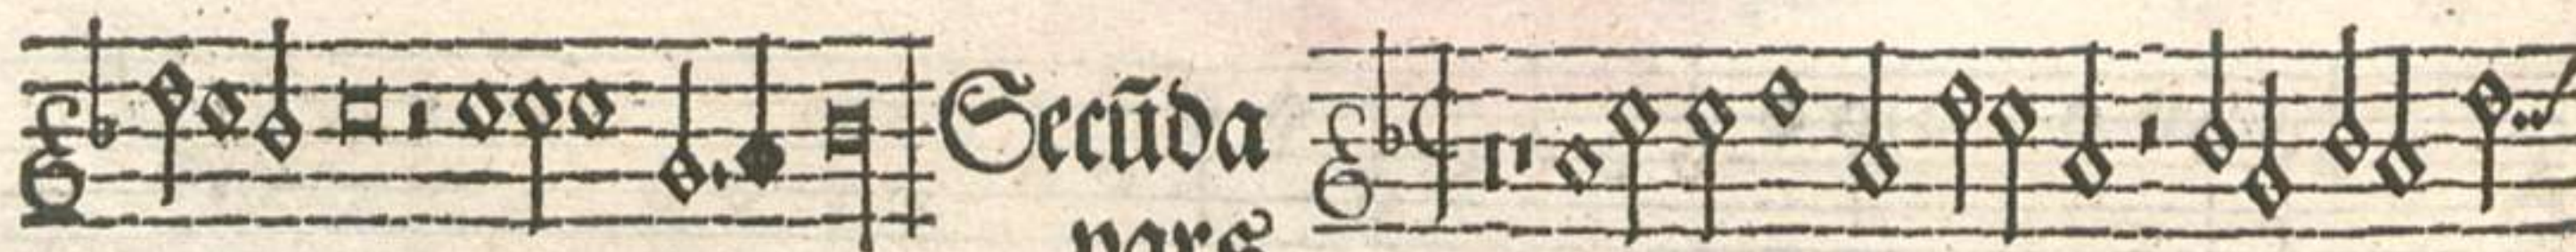 Secūda
pars